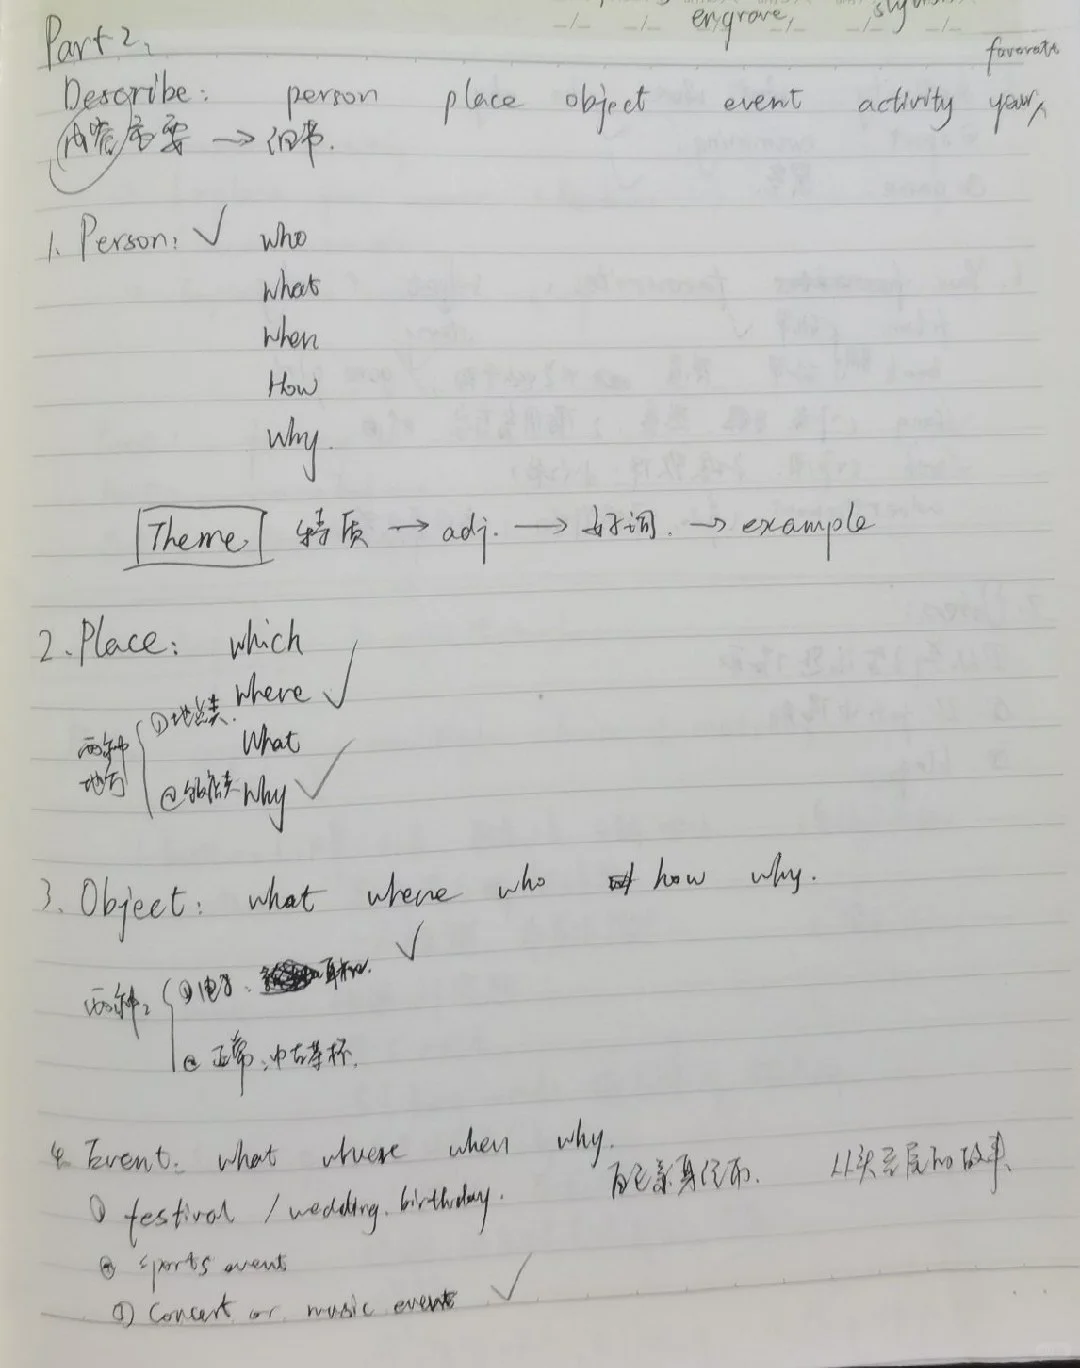 engrave,
Part 2,
favorate
Describe: person place object event activity your
内容重要 → 细节.
1. Person: ✓ who
what
when
How
why.
Theme 特质 → adj. → 好词. → example
2. Place: which
①地点类. where ✓
两种地方
What
② why ✓
3. Object: what where who how why.
✓
两种: ①电子、耳机.
② 正常:冲古茶杯.
4. Event: what where when why.
自己亲身经历. 从头至尾的故事.
① festival / wedding. birthday.
② sports event
③ concert or music event ✓